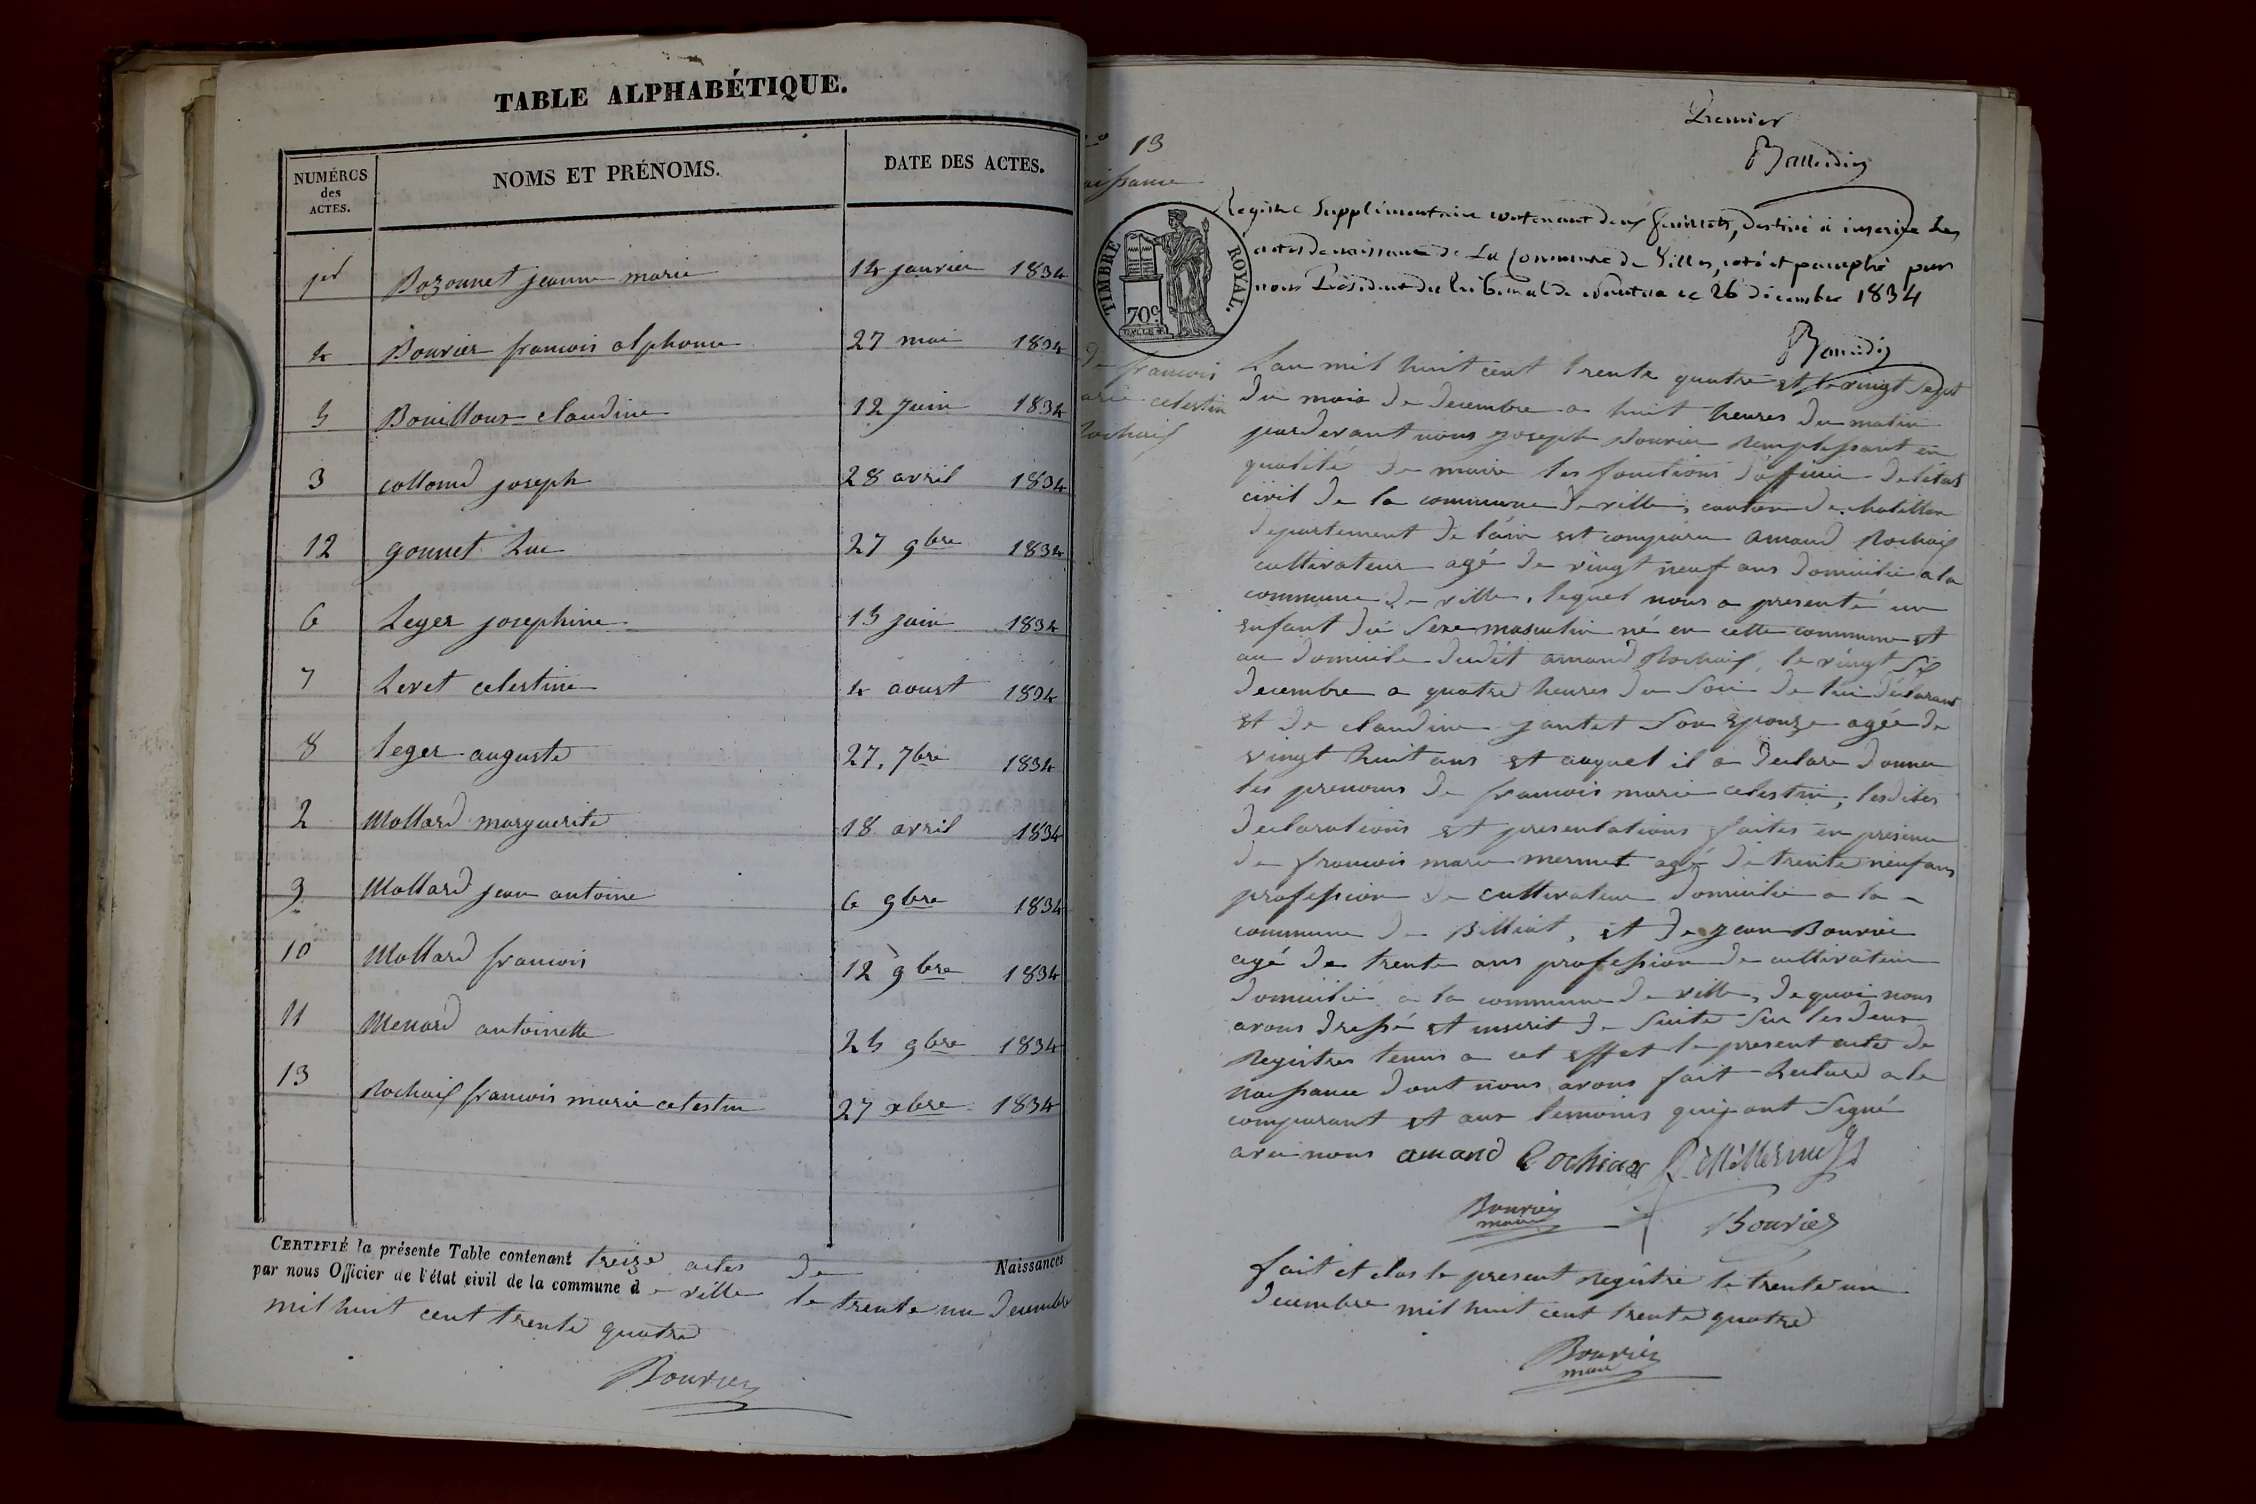 TABLE ALPHABÉTIQUE.
NUMÉROS des ACTES. NOMS ET PRÉNOMS. DATE DES ACTES.
1er Bozonnet jeanne marie 14 janvier 1834
4 Bouvier francois alphonse 27 mai 1834
5 Bouilloux claudine 12 juin 1834
3 collomd joseph 28 avril 1834
12 gonnet Luc 27 9bre 1834
6 Leger josephine 15 juin 1834
7 Levet celestine 4 aoust 1834
8 Leger auguste 27. 7bre 1834
2 Mollard marguerite 18 avril 1834
9 Mollard jean antoine 6 9bre 1834
10 Mollard francois 12 9bre 1834
11 Menard antoinette 25 9bre 1834
13 Rochaix francois marie celestin 27 xbre 1834
CERTIFIÉ la présente Table contenant treize actes de Naissances
par nous Officier de l'état civil de la commune de ville le trente un decembre
mil huit cent trente quatre
Bouvier
Premier
13
aissance
Registre Supplémentaire contenant deux feuillets, destiné à inscrire les
actes de naissance de La Commune de Villes, coté et paraphé par
nous Président du tribunal de Nantua ce 26 décembre 1834
TIMBRE ROYAL.
70c.
De francois
arie celestin
Rochaix
L'an mil huit cent trente quatre et le vingt sept
du mois de decembre a huit heures du matin
pardevant nous joseph Bouvier remplissant en
qualité de maire les fonctions d'officier de l'état
civil de la commune de ville, canton de chatillon
departement de l'ain est comparu amand Rochaix
cultivateur agé de vingt neuf ans domicilié a la
commune de ville, lequel nous a presenté un
enfant du sexe masculin né en cette commune et
au domicile dudit amand Rochaix, le vingt six
decembre a quatre heures du soir de lui déclarant
et de claudine jantet son epouze agée de
vingt huit ans et auquel il a declaré donner
les prenoms de francois marie celestin, lesdites
declarations et presentations faites en presence
de francois marie mermet agé de trente neuf ans
profession de cultivateur domicilié a la
commune de Billiat, et de jean Bouvier
agé de trente ans profession de cultivateur
domicilié a la commune de ville, de quoi nous
avons dressé et inscrit de suite sur les deux
registres tenus a cet effet le present acte de
naissance dont nous avons fait lecture a le
comparant et aux temoins qui ont signé
avec nous amand Rochiax
Bouvier
maire
Bouvier
fait et clos le present registre le trente un
decembre mil huit cent trente quatre
Bouvier
maire